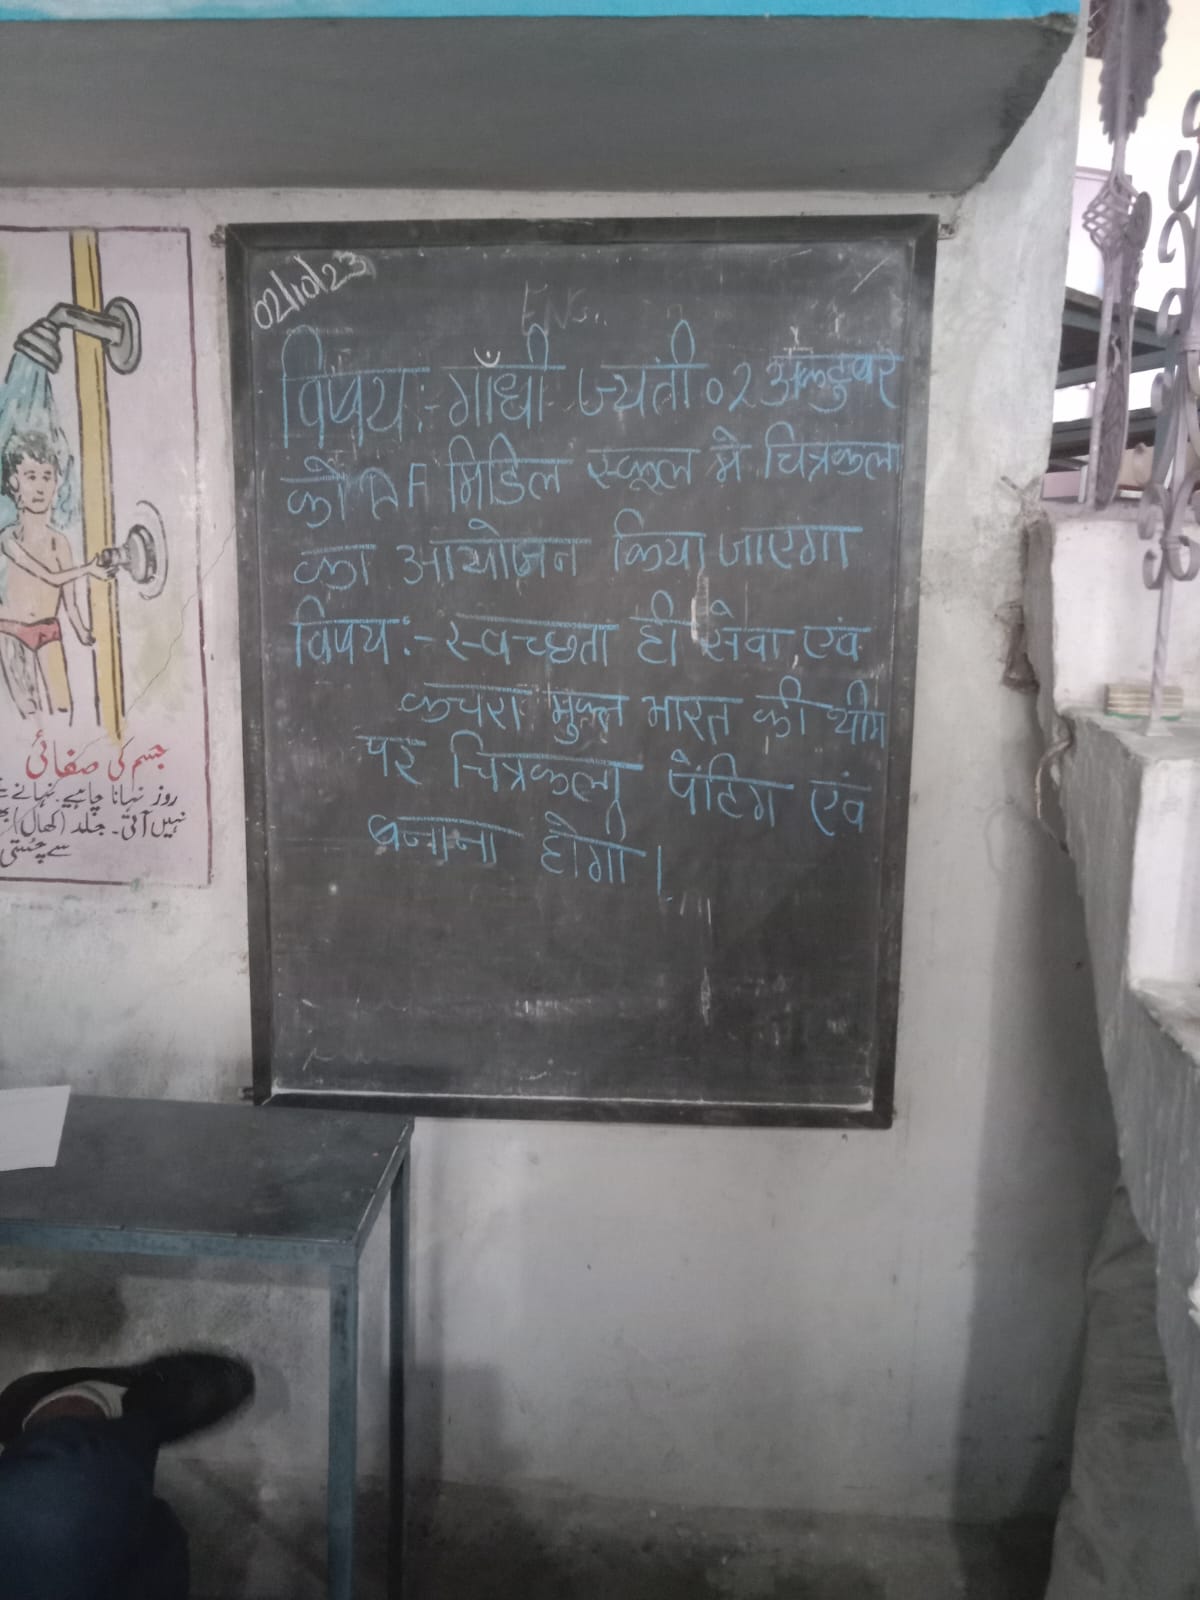 02/10/23
ENG.
विषय:- गाँधी ज्यंती 02 अक्टुबर
को AF मिडिल स्कूल मे चित्रकला
का आयोजन किया जाएगा
विषय:- स्वच्छता ही सेवा, एवं
कचरा मुक्त भारत की थीम
पर चित्रकला पेंटिग एंव
बनाना होगी।
جسم کی صفائی
روز نہانا چاہیے۔ نہانے
نہیں آتی۔ جلد (کھال)
سے چُستی